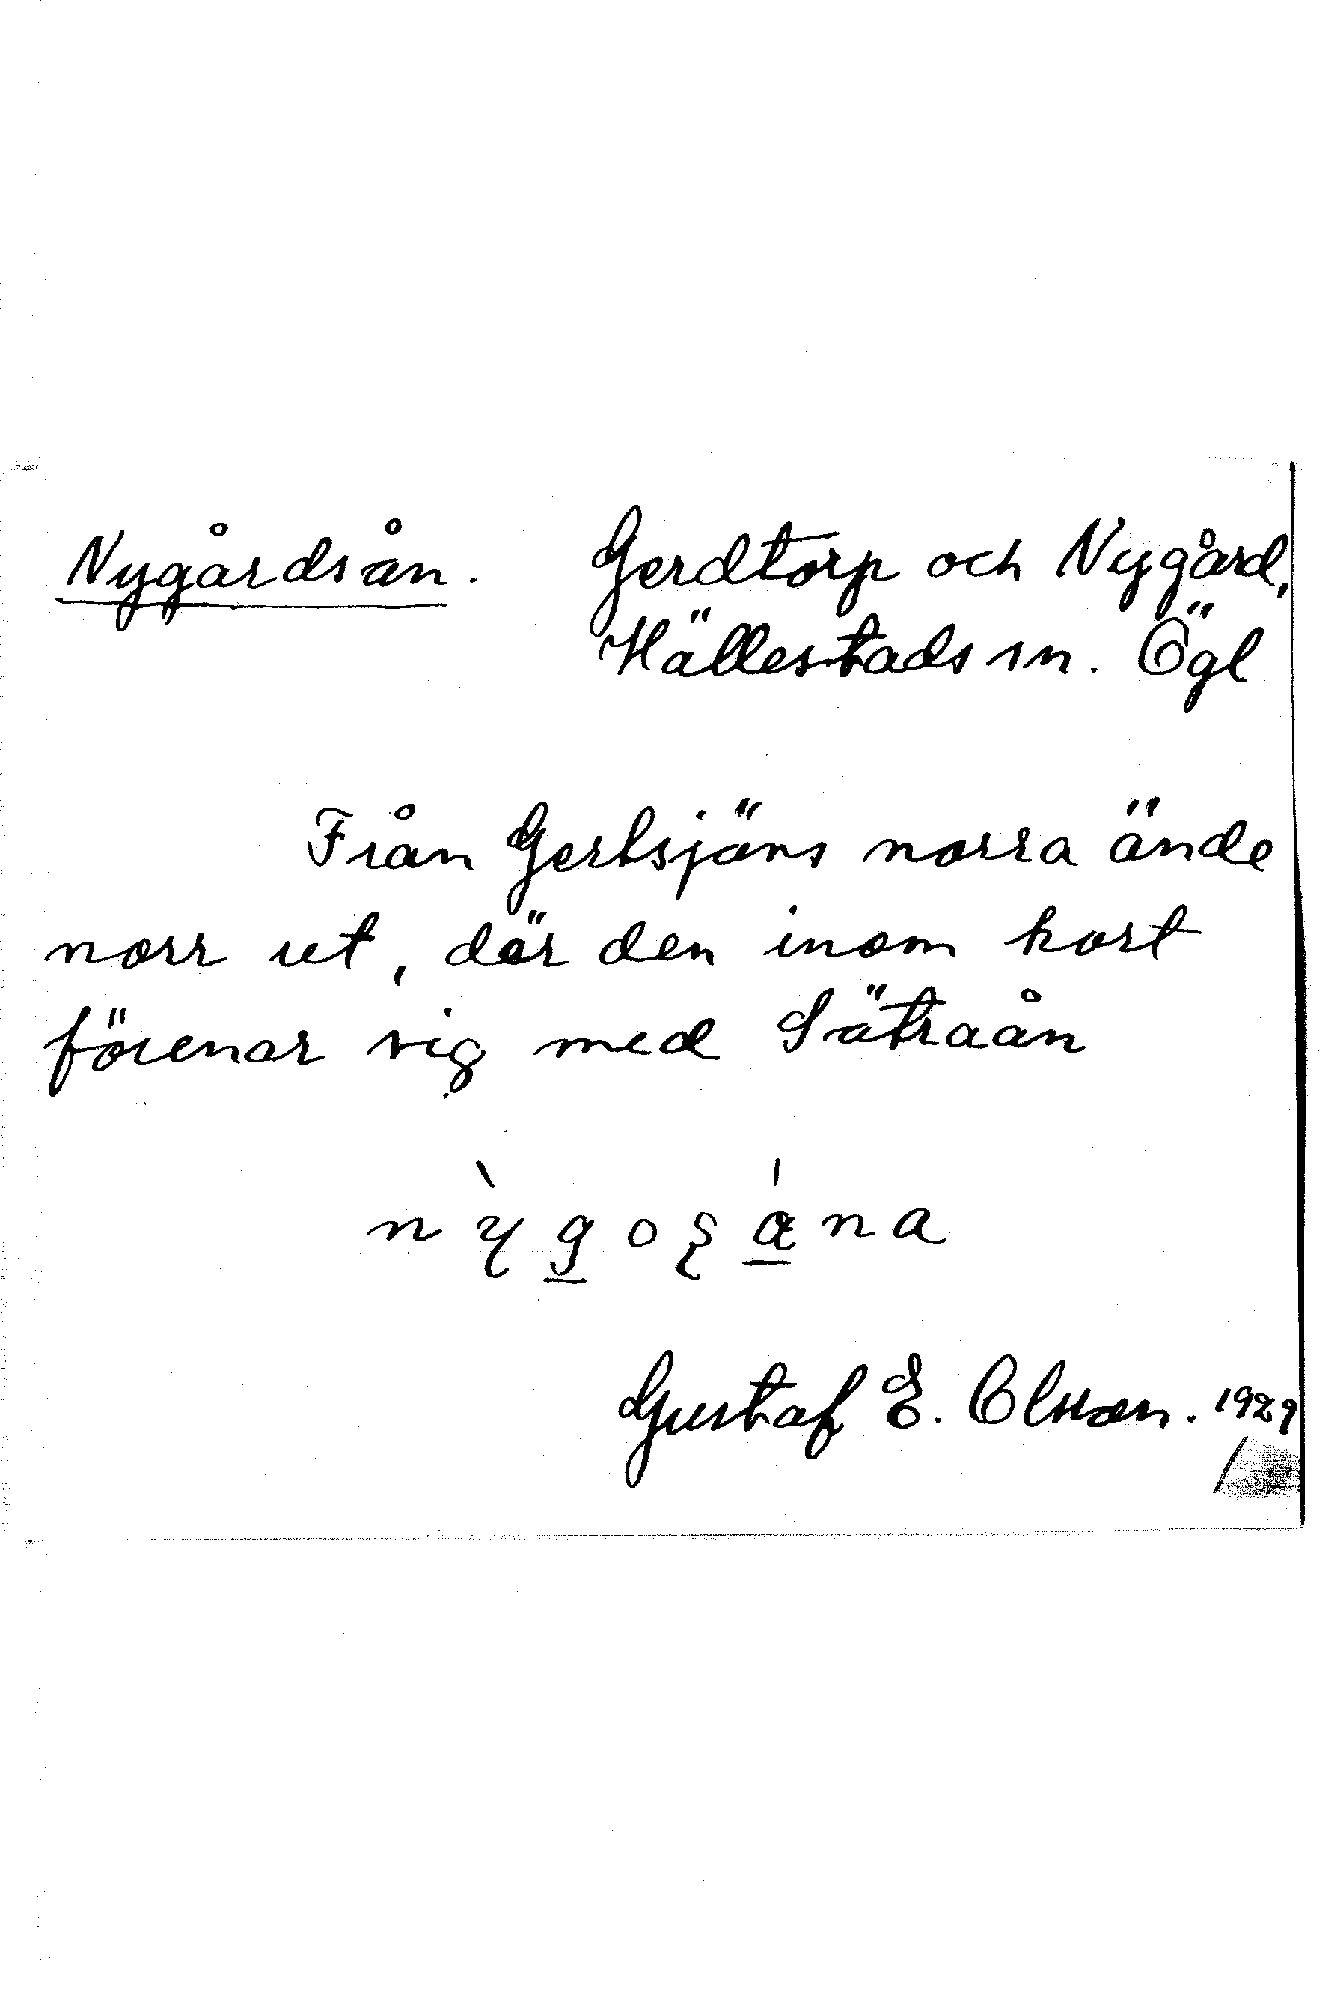 Nygårdsån. Gerdtorp och Nygård,
Hällestads sn. Ögl
Från Gerbsjöns norra ände
norr ut, där den inom kort
förenar sig med Sätraån
Gustaf E. Olsson. 1929